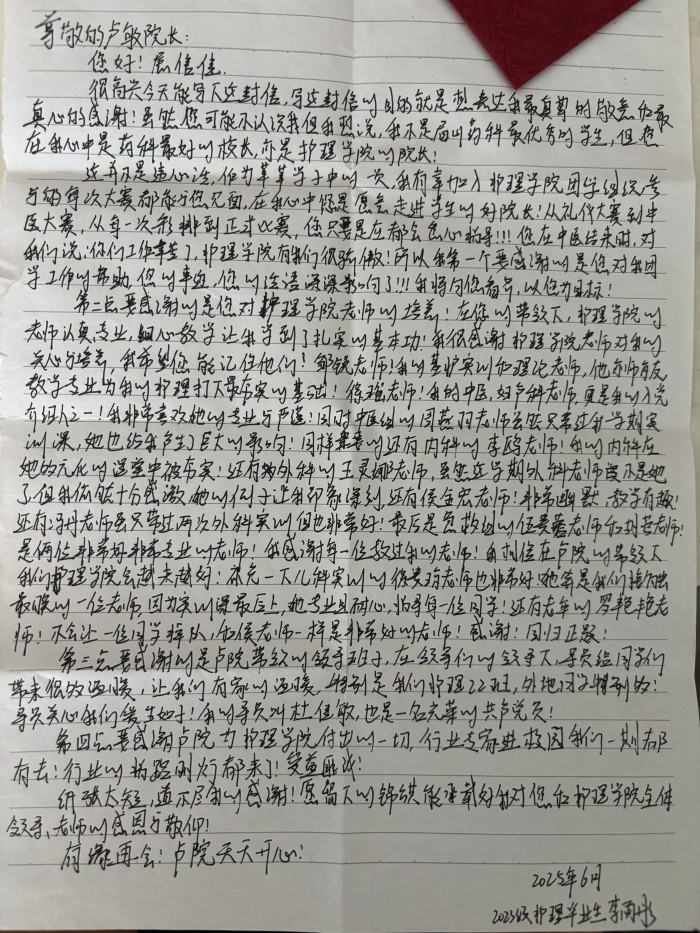 尊敬的卢敏院长：
您好！展信佳.
很高兴今天能写下这封信，写这封信的目的就是想表达我最真尊的敬意和最
真心的感谢！虽然您可能不认识我但我想说，我不是届叫药科最优秀的学生，但您
在我心中是药科最好的校长，亦是护理学院的院长！
这并不是违心话，作为莘莘学子中的一次，我有幸加入护理学院团学组织，参
与的每次大赛都能与您见面，在我心中您是愿意走进学生的好院长！从礼仪大赛到中
医大赛，从每一次彩排到正式比赛，您只要是在都会悉心指导!!!您在中医结束时，对
我们说：你们工作辛苦了，护理学院有你们很骄傲！所以我第一个要感谢的是您对我团
学工作的帮助，您的事迹，您的话语深深影响了!!!我将向您看齐，以您为目标！
第二点要感谢的是您对护理学院老师的培养！在您的带领下，护理学院的
老师认真，专业，细心教学让我学到了扎实的基本功！我很感谢护理学院老师对我的
关心与培养，我希望您能记住他们！ 老师！我的基护实训和理论老师，他亦师亦友，
教学专业为我的护理打下最夯实的基础！徐 老师！我的中医，妇产科老师，更是我的入党
介绍人之一！我非常喜欢她的专业与严谨！同时中医组的周燕羽老师虽然只带过我一学期实
训课，她也给我产生了巨大的影响！同样 还有内科的李鸥老师！我的内科在
她的 课堂中被夯实！还有 外科的王灵娜老师，虽然这学期外科老师 不是她
了但我依然十分感激，她的例子让我印象深刻，还有侯金宏老师！非常幽默，教学有趣！
还有 老师虽只带过两次外科实训但也非常好！最后是急救组的伍 老师和 老师！
是俩位非常好非常专业的老师！我感谢每一位教过我的老师！我相信在卢院的带领下
我们护理学院会越来越好！补充一下儿科实训的徐 老师也非常好！她算是我们接触
最晚的一位老师，因为实训课最后上，她专业且耐心，指导每一位同学！还有老年的罗艳艳老
师！不会让一位同学掉队，和侯老师一样是非常好的老师！感谢！回归正题！
第三点要感谢的是卢院带领的领导班子，在领导们的领导下，导员给同学们
带来很好的温暖，让我们有家的温暖，特别是我们护理22班，外地同学特别多！
导员关心我们 ！我的导员叫杜佳敏，也是一名光荣的共产党员！
第四点要感谢卢院为护理学院付出的一切，行业专家进校园我们一期都
有去！行业的 都来了！受益匪浅！
纸张太短，道不尽我的感谢！愿留下的锦旗能承载好我对您和护理学院全体
领导、老师的感恩与敬仰！
有缘再会！卢院天天开心！
2025年6月
2023级护理毕业生